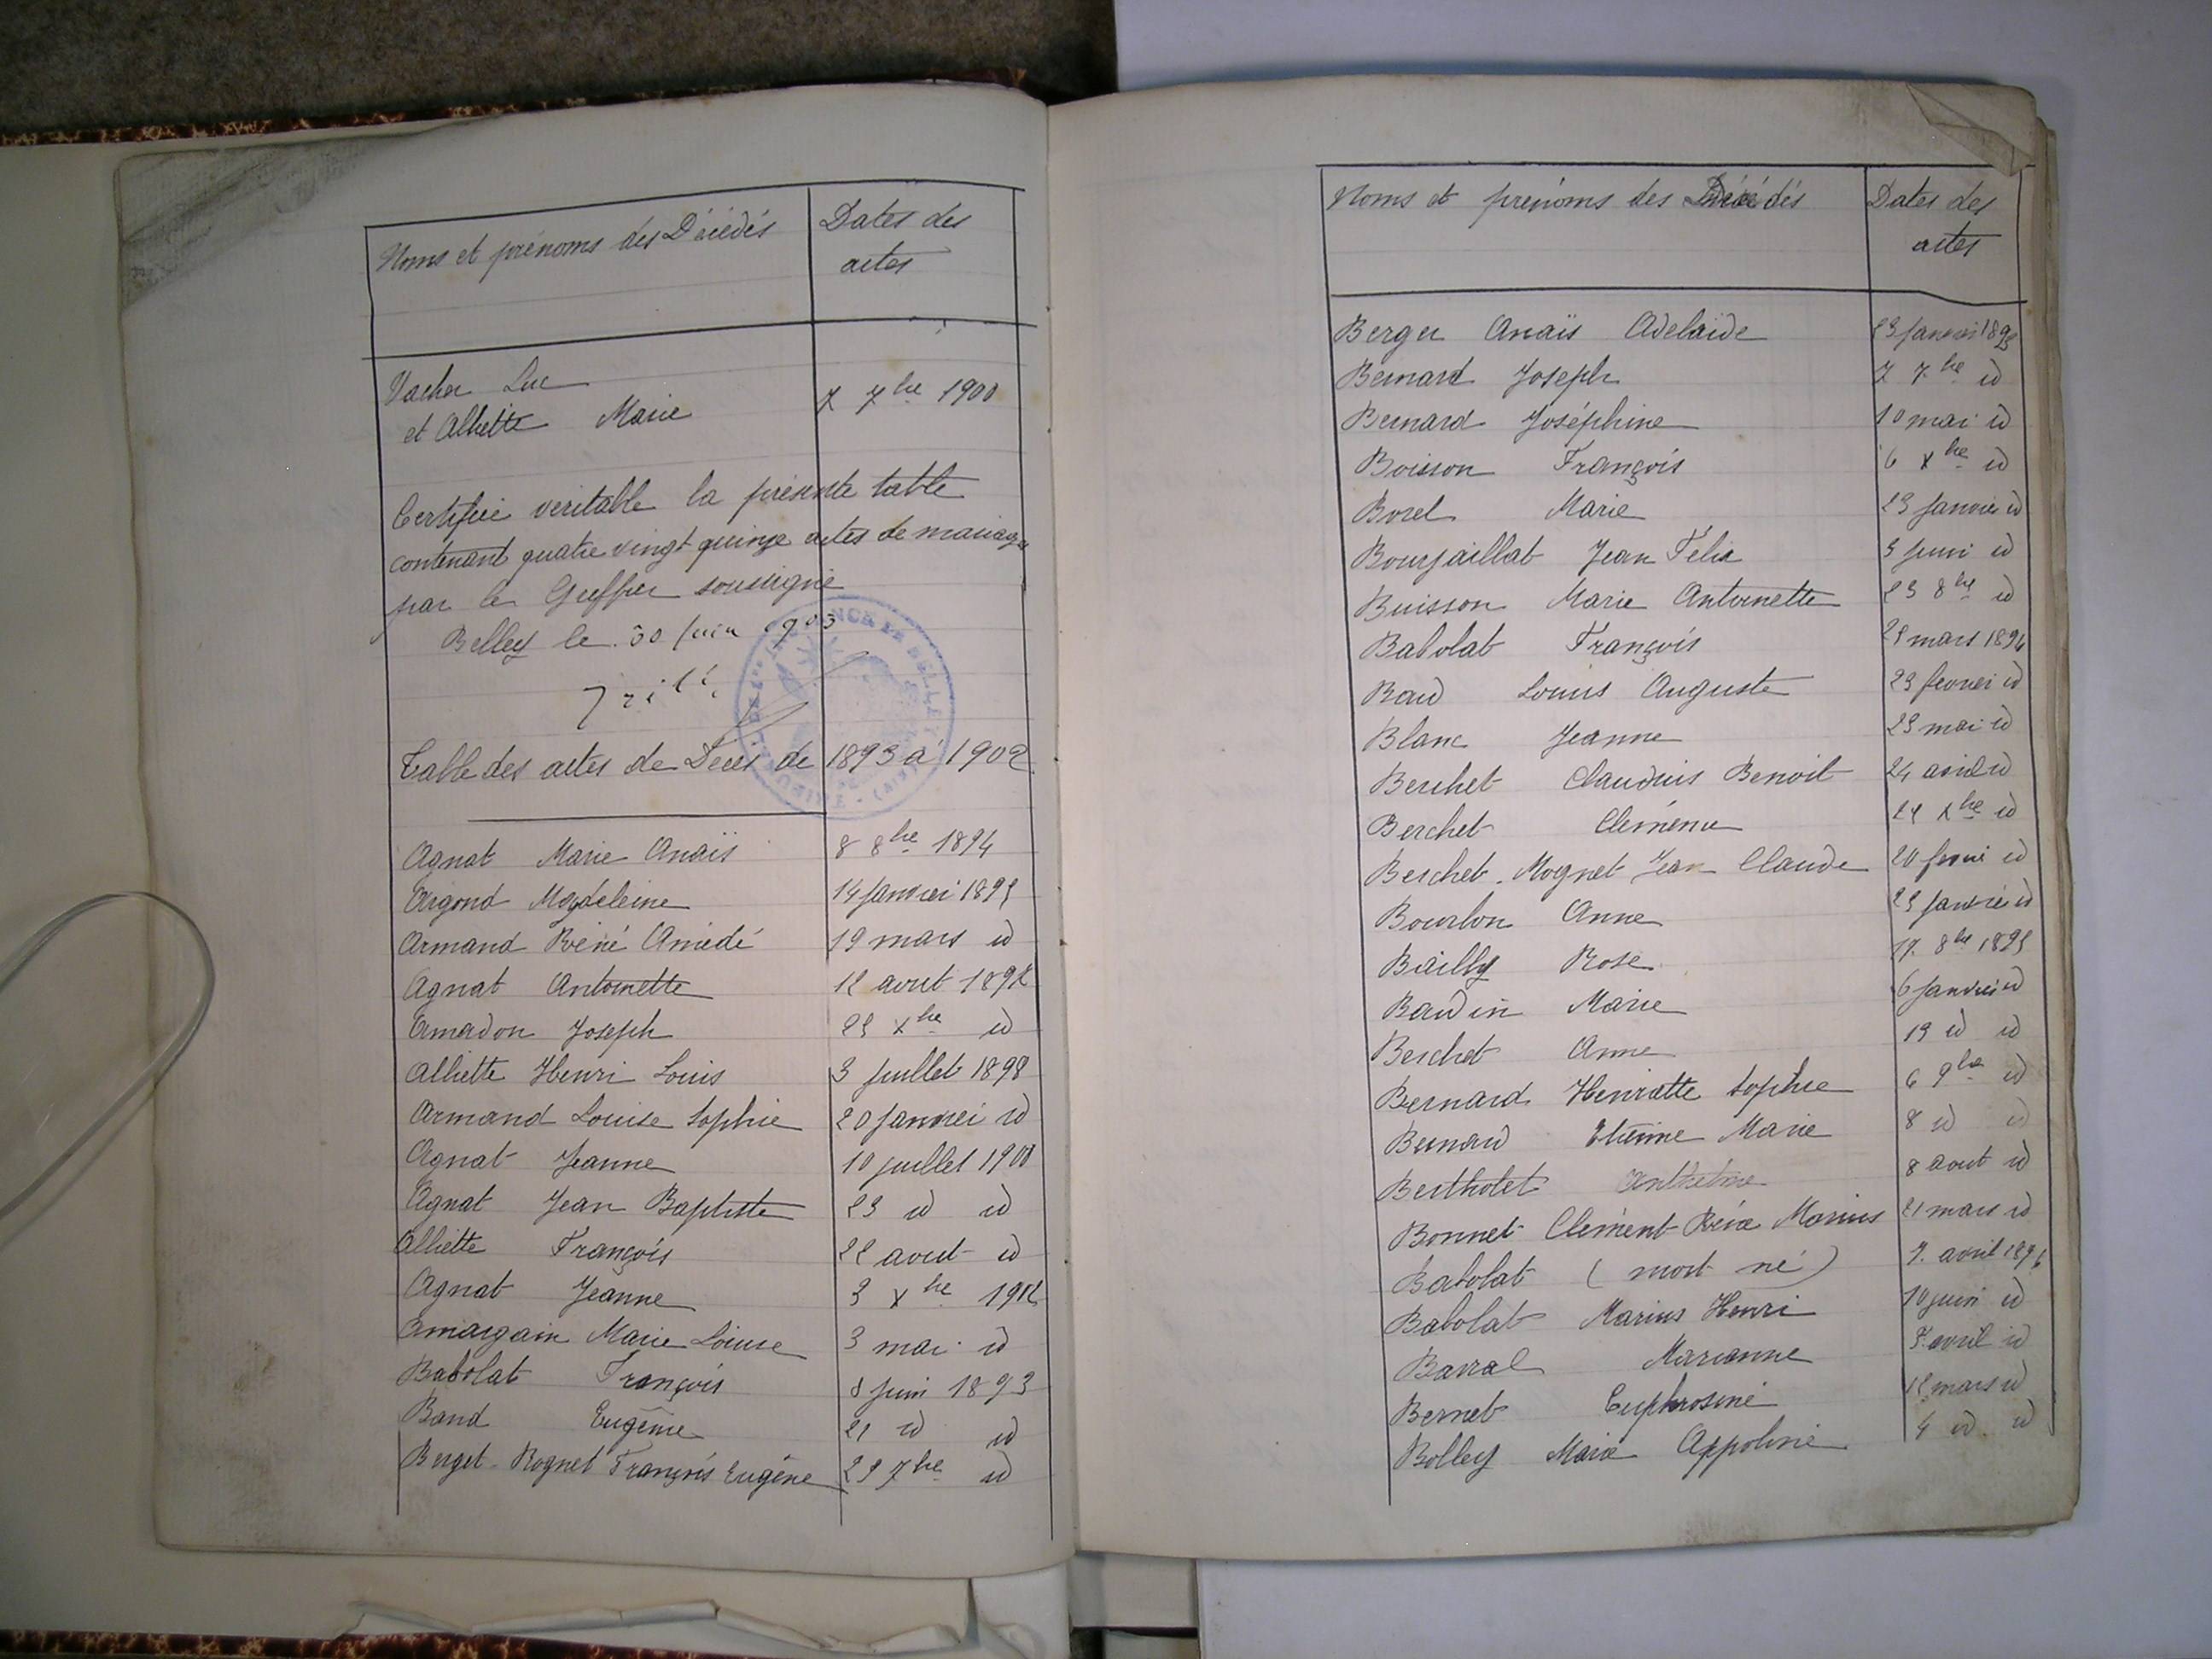 Noms et prénoms des Décédés Dates des
actes
Vacher Luc
et Alliette Marie 7 7bre 1900
Certifié veritable la présente table
contenant quatre vingt quinze actes de mariages
par le Greffier soussigné
Belley le 30 Juin 1903
Table des actes de Décès de 1893 à 1902
Agnat Marie Anaïs 8 8bre 1894
Argond Magdeleine 14 Janvier 1895
Armand Réné Amédé 19 mars id
Agnat Antoinette 12 aout 1897
Amadon Joseph 25 Xbre id
Alliette Henri Louis 3 juillet 1898
Armand Louise Sophie 20 Janvier id
Agnat Jeanne 10 juillet 1900
Agnat Jean Baptiste 23 id id
Alliette François 22 aout id
Agnat Jeanne 3 Xbre 1902
Amargain Marie Louise 3 mai id
Babolat François 8 Juin 1893
Band Eugénie 21 id id
Berget-Rognet François Eugène 29 7bre id
Noms et prénoms des Décédés Dates des
actes
Berger Anaïs Adelaïde 23 Janvier 1893
Bernard Joseph 7 7bre id
Bernard Joséphine 10 mai id
Boisson François 6 Xbre id
Borel Marie 23 Janvier id
Bourjaillat Jean Félix 5 Juin id
Buisson Marie Antoinette 23 8bre id
Babolat François 25 mars 1894
Baud Louis Auguste 23 fevrier id
Blanc Jeanne 23 mai id
Berchet Claudius Benoit 24 avril id
Berchet Clémence 24 Xbre id
Berchet-Mognet Jean Claude 20 id
Bourbon Anne 25 Janvier id
Bailly Rose 17 8bre 1895
Baudin Marie 6 Janvier id
Berchet Anne 19 id id
Bernard Henriette Sophie 6 9bre id
Bernard Etienne Marie 8 id id
Bertholet Anthelme 8 aout id
Bonnet Clément Marius 21 mars id
Babolat (mort né) 7 avril 1896
Babolat Marius Henri 10 juin id
Barral Marianne avril id
Bernet Euphrosine 12 mars id
Bolley Marie Appoline 4 id id